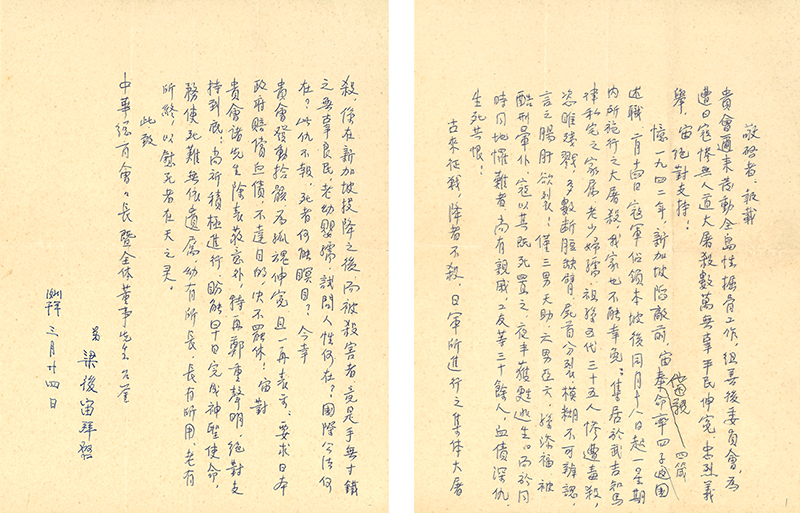 敬啓者,報載
貴會邇來發動全島性掘骨工作,組善後委員會,為
遭日寇慘無人道大屠殺數萬無辜平民伸寃,忠烈義
舉,宙絕對支持!
憶一九四二年,新加坡陷敵前,宙奉命率四子返國
四歲
述職,二月十五日寇軍佔領本坡後,同月十八日起一星期
內所施行之大屠殺,我家也不能幸免;舊居於武吉知馬
律私宅之家屬,老少婦孺,祖孫四代三十五人慘遭毒殺,
恣睢殘戮,多數斷脰缺臂,屍首分裂,模糊不可辨認,
言之腸肝欲裂!僅三男天助、六男亞六、孫添福被
酷刑暈仆,寇以其既死置之,夜半獲甦逃生。而於同
時同地罹難者,尚有親戚、工友等三十餘人,血債深仇,
生死共恨!
古來征戰,降者不殺,日軍所進行之集体大屠
殺,係在新加坡投降之後,而被殺害者竟是手無寸鐵
之無辜良民,老幼嬰孺,試問人性何在?國際公法何
在?此仇不報,死者何能瞑目?今幸
貴會發動拾骸為孤魂伸寃,且一再表示,要求日本
政府賠償血債,不達目的,决不罷休!宙對
貴會諸先生除表敬意外,特再鄭重聲明,絕對支
持到底,尚祈積極進行,盼能早日完成神聖使命,
務使死難無依遺屬幼有所長,長有所用,老有
所終,以慰死者在天之灵。
此致
中華總商會會長暨全体董事先生公鑒
弟 梁後宙拜啓
三月廿四日